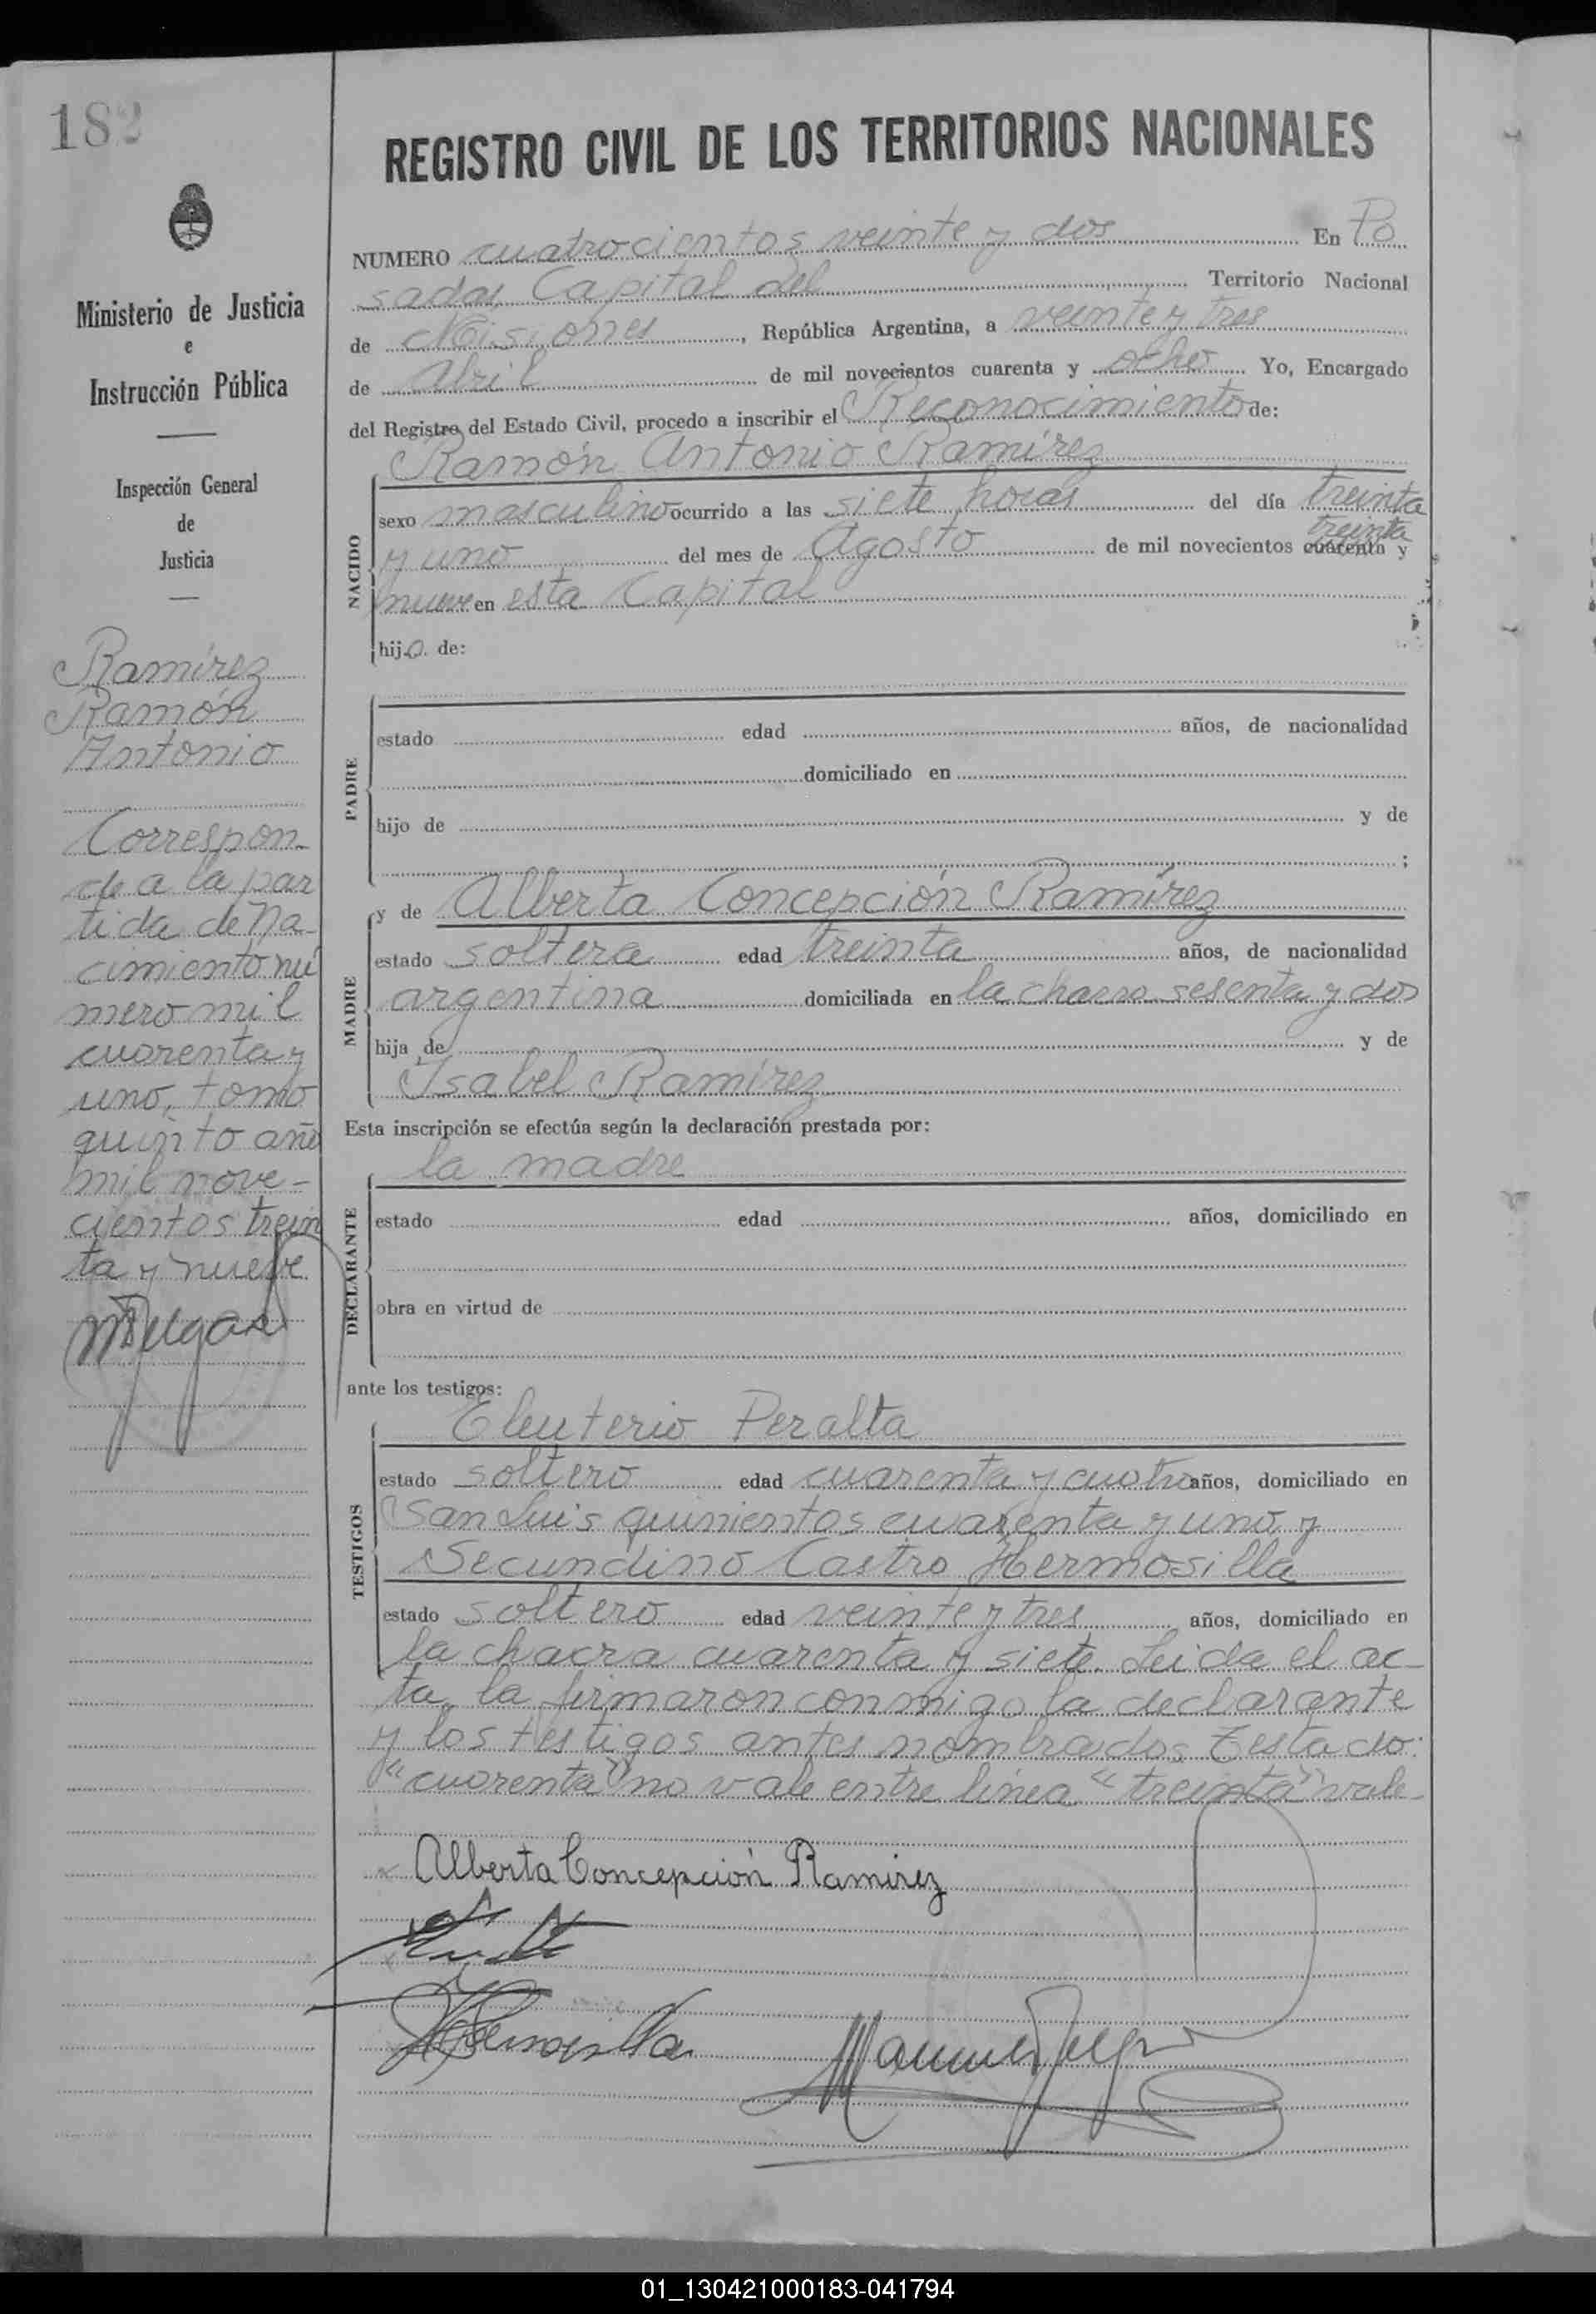 182
Ministerio de Justicia
e
Instrucción Pública
Inspección General
de
Justicia
Ramírez
Ramón
Antonio
Correspon-
de a la par
tida de Na-
cimiento nú
mero mil
cuarenta y
uno, tomo
quinto año
mil nove-
cientos trein
ta y nueve
REGISTRO CIVIL DE LOS TERRITORIOS NACIONALES
NUMERO cuatrocientos veinte y dos En Po
sadas, Capital del Territorio Nacional
de Misiones, República Argentina, a veinte y tres
de abril de mil novecientos cuarenta y ocho Yo, Encargado
del Registro del Estado Civil, procedo a inscribir el Reconocimiento de:
Ramón Antonio Ramírez
NACIDO
sexo masculino ocurrido a las siete horas del día treinta
treinta
y uno del mes de Agosto de mil novecientos cuarenta y
nueve en esta Capital
hijo. de:
PADRE
estado edad años, de nacionalidad
domiciliado en
hijo de y de
;
MADRE
y de Alberta Concepción Ramírez
estado soltera edad treinta años, de nacionalidad
argentina domiciliada en la chacra sesenta y dos
hija de y de
Isabel Ramírez
Esta inscripción se efectúa según la declaración prestada por:
la madre
DECLARANTE
estado edad años, domiciliado en
obra en virtud de
ante los testigos:
Eleuterio Peralta
TESTIGOS
estado soltero edad cuarenta y cuatro años, domiciliado en
San Luis quinientos cuarenta y uno y
Secundino Castro Hermosilla
estado soltero edad veinte y tres años, domiciliado en
la chacra cuarenta y siete. Leida el ac-
ta, la firmaron conmigo la declarante
y los testigos antes nombrados Testado:
"cuarenta" no vale entre línea "treinta" vale-
Alberta Concepción Ramirez
Hermosilla
01_130421000183-041794